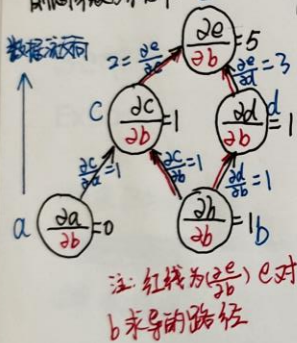 数据流方向
∂e/∂b=5
2=∂e/∂c
∂e/∂d=3
c
∂c/∂b=1
∂d/∂b=1
d
∂c/∂a=1
∂c/∂b=1
∂d/∂b=1
a
∂a/∂b=0
∂b/∂b=1
b
注:红线为(∂e/∂b) e对
b求导的路径